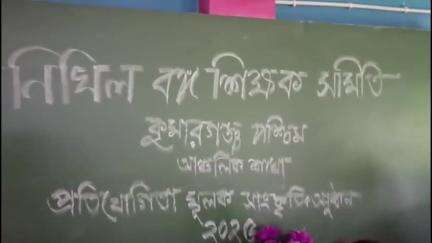 নিখিল বঙ্গ শিক্ষক সমিতি
কুমারগঞ্জ পশ্চিম
আঞ্চলিক শাখা
প্রতিযোগিতা মূলক সাংস্কৃতিক অনুষ্ঠান
২০২৫